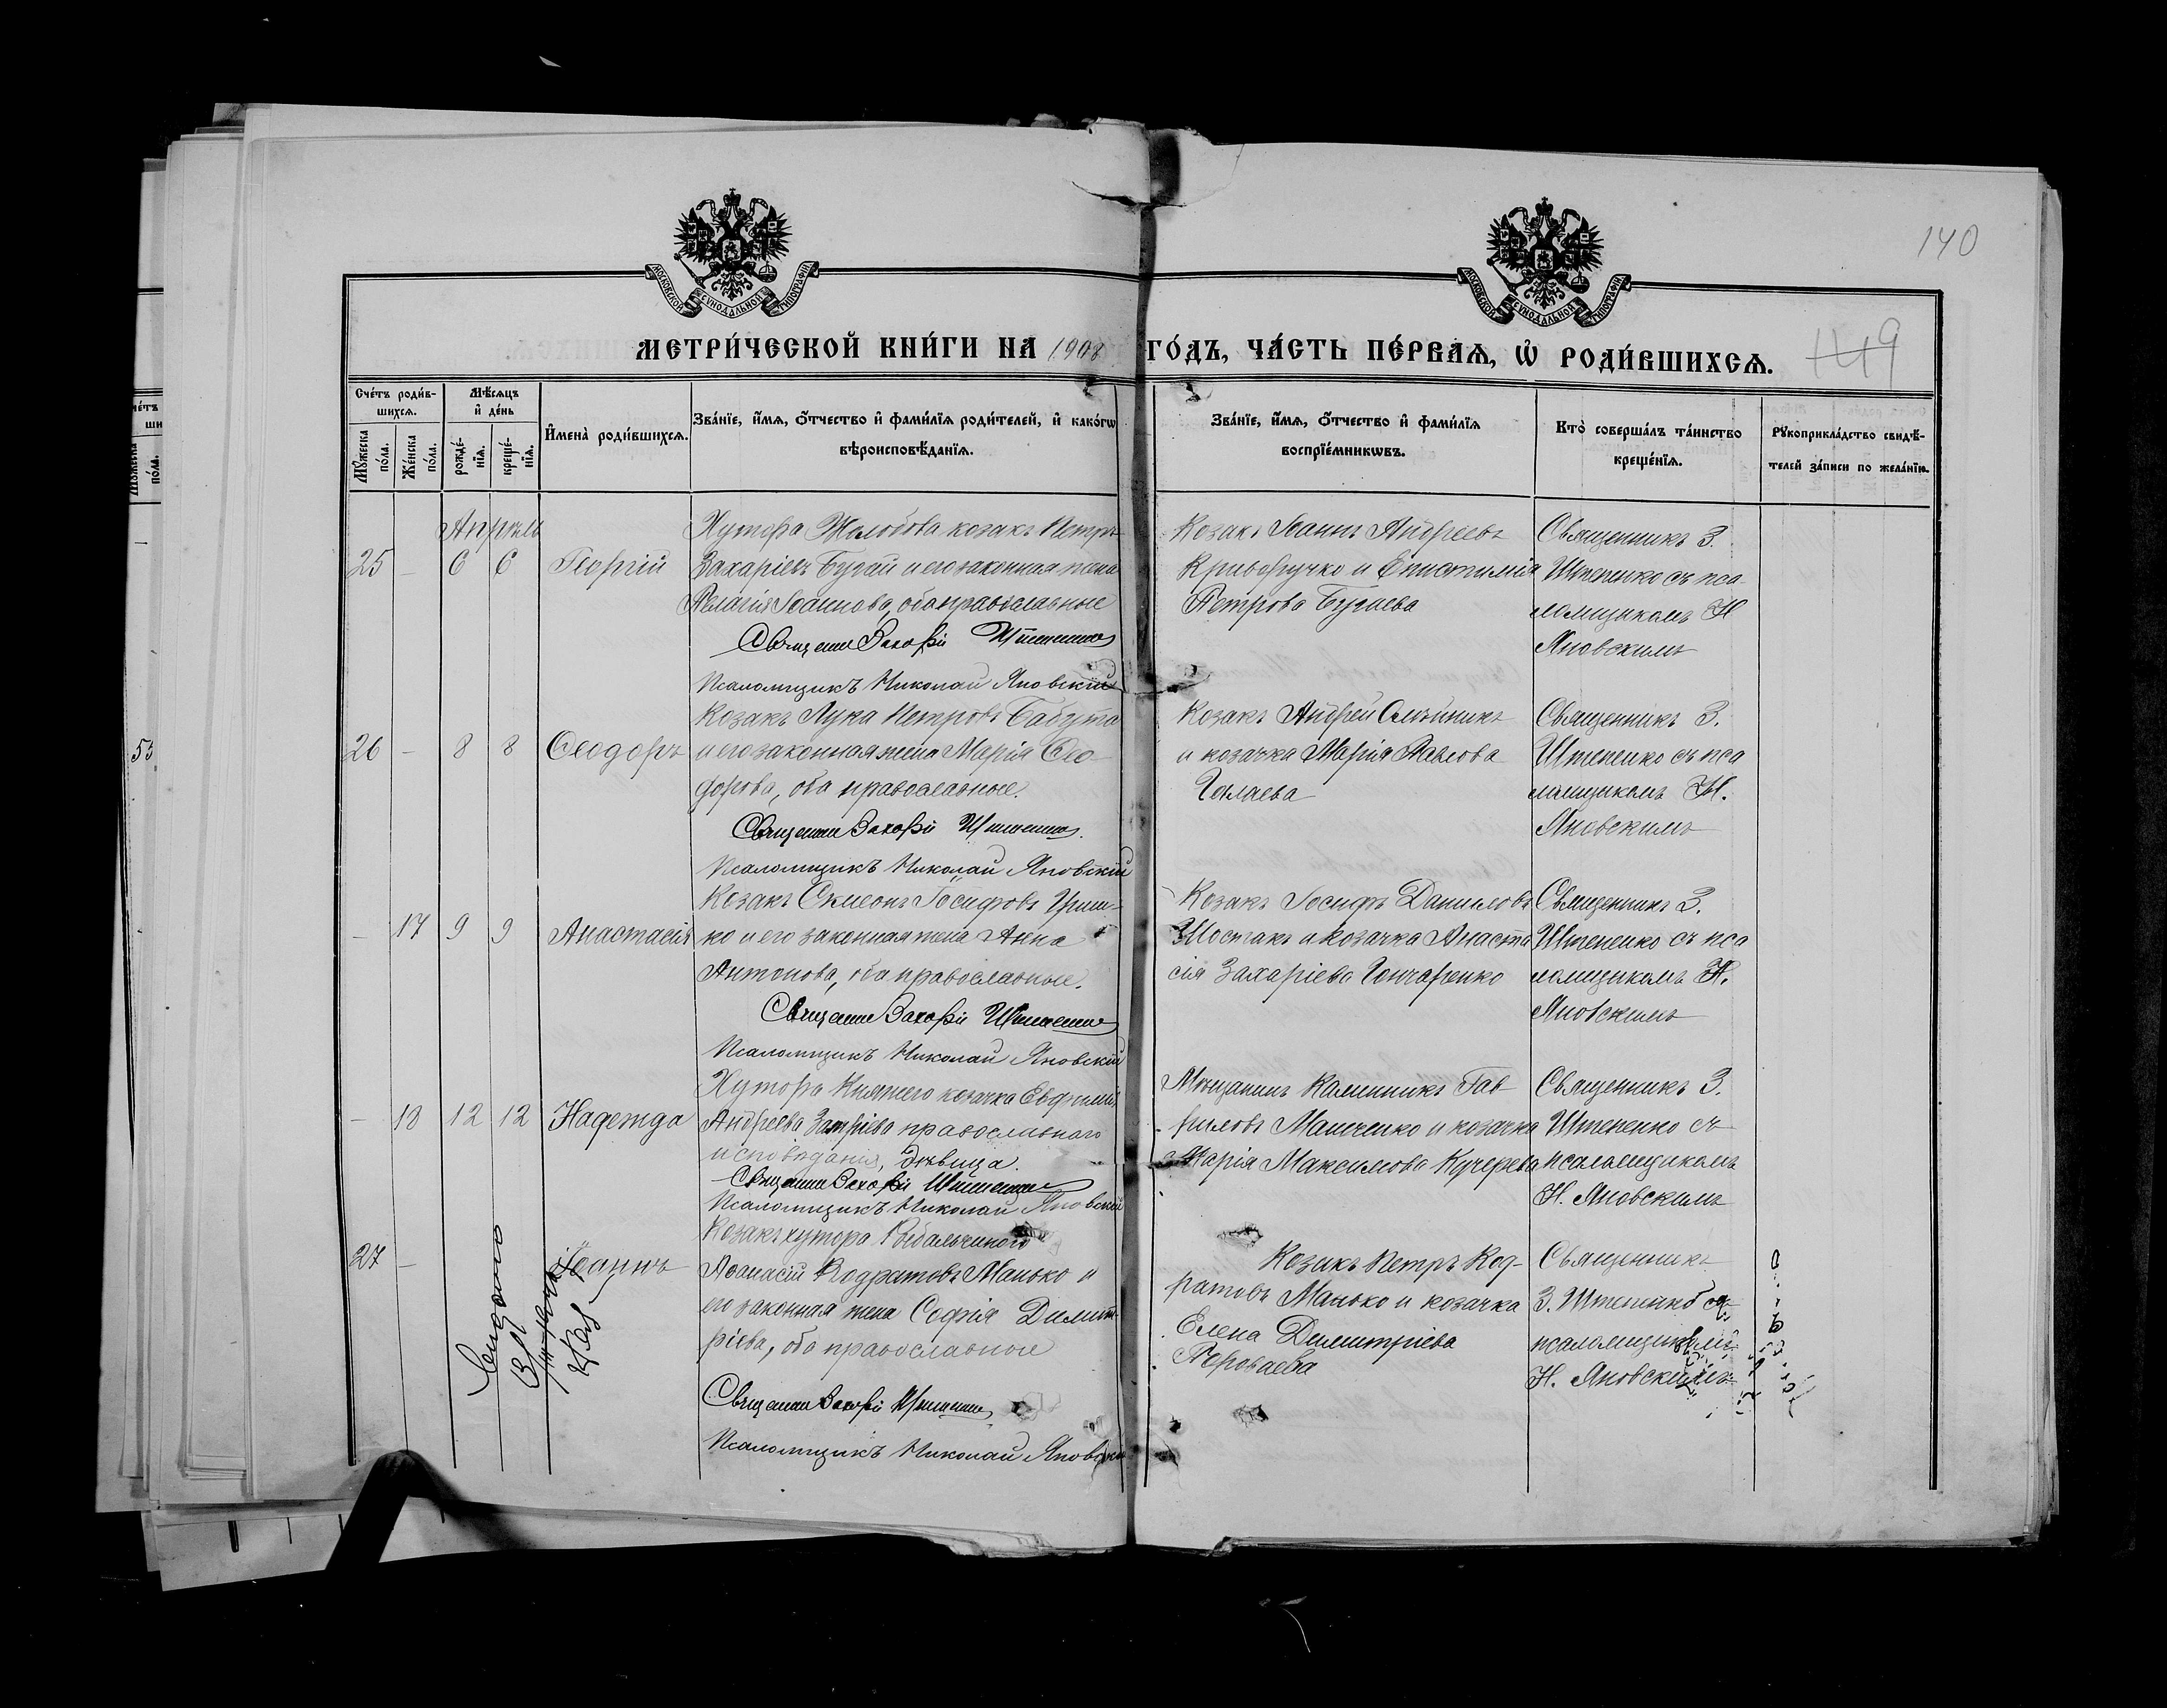 МОСКОВСКОЙ СѴНОДАЛЬНОЙ ТИПОГРАФІИ
МОСКОВСКОЙ СѴНОДАЛЬНОЙ ТИПОГРАФІИ
140
149
МЕТРИ́ЧЕСКОЙ КНИ́ГИ НА 1908 ГО́ДЪ, ЧА́СТЬ ПЕ́РВАѦ, Ѡ҆ РОДИ́ВШИХСѦ.
Сче́тъ роди́в-
шихсѧ.
Мꙋжеска по́ла.
Же́нска по́ла.
Мѣ́сѧцъ и҆ де́нь
рожде́-
нїѧ.
креще́-
нїѧ.
И҆мена̀ роди́вшихсѧ.
Зва́нїе, и҆́мѧ, ѻ҆́тчество и҆ фами́лїѧ роди́телей, и҆ како́гѡ
вѣроисповѣ́данїѧ.
Зва́нїе, и҆́мѧ, ѻ҆́тчество и҆ фами́лїѧ
воспрїе́мникѡвъ.
Кто̀ соверша́лъ та́инство
креще́нїѧ.
Рꙋкоприкла́дство свидѣ́-
телей за́писи по жела́нїю.
Апрѣль
25 — 6 6 Георгій
Хутора Жолобова козакъ Петръ
Захаріевъ Бугай и его законная жена
Пелагія Іоаннова, оба православные
Священникъ Захарій Штепенко
Псаломщикъ Николай Яновскій
Козакъ Іоаннъ Андреевъ
Криворучко и Епистимія
Петрова Бугаева
Священникъ З.
Штепенко съ пса
ломщикомъ Н
Яновскимъ
26 — 8 8 Ѳеодоръ
Козакъ Лука Петровъ Бабута
и его законная жена Марія Ѳео-
дорова, оба православные.
Священникъ Захарій Штепенко
Псаломщикъ Николай Яновскій
Козакъ Андрей Олейникъ
и козачка Марія Павлова
Священникъ З.
Штепенко съ пса
ломщикомъ Н.
Яновскимъ
— 17 9 9 Анастасія
Козакъ Симеонъ Іосифовъ Гриш-
ко и его законная жена Анна
Антонова, оба православные.
Священникъ Захарій Штепенко
Псаломщикъ Николай Яновскій
Козакъ Іосифъ Даниловъ
Шостакъ и козачка Анаста
сія Захаріева Гончаренко
Священникъ З.
Штепенко съ пса
ломщикомъ Н.
Яновскимъ
— 18 12 12 Надежда
Хутора Княжего козачка Евфимія
Андреева православнаго
исповѣданія, дѣвица.
Священникъ Захарій Штепенко
Псаломщикъ Николай Яновскій
Мѣщанинъ Каленикъ Гав-
риловъ Мащенко и козачка
Марія Максимова Кучерева
Священникъ З.
Штепенко съ
псаломщикомъ
Н. Яновскимъ
27 — Іоаннъ
Козакъ хутора Рыбальчиного
Аѳанасій Кодратовъ Манько и
его законная жена Софія Димит-
ріева, оба православные
Священникъ Захарій Штепенко
Псаломщикъ Николай Яновскій
Козакъ Петръ Код-
ратовъ Манько и козачка
Елена Димитріева
Священникъ
З. Штепенко съ
псаломщикомъ
Н. Яновскимъ
53